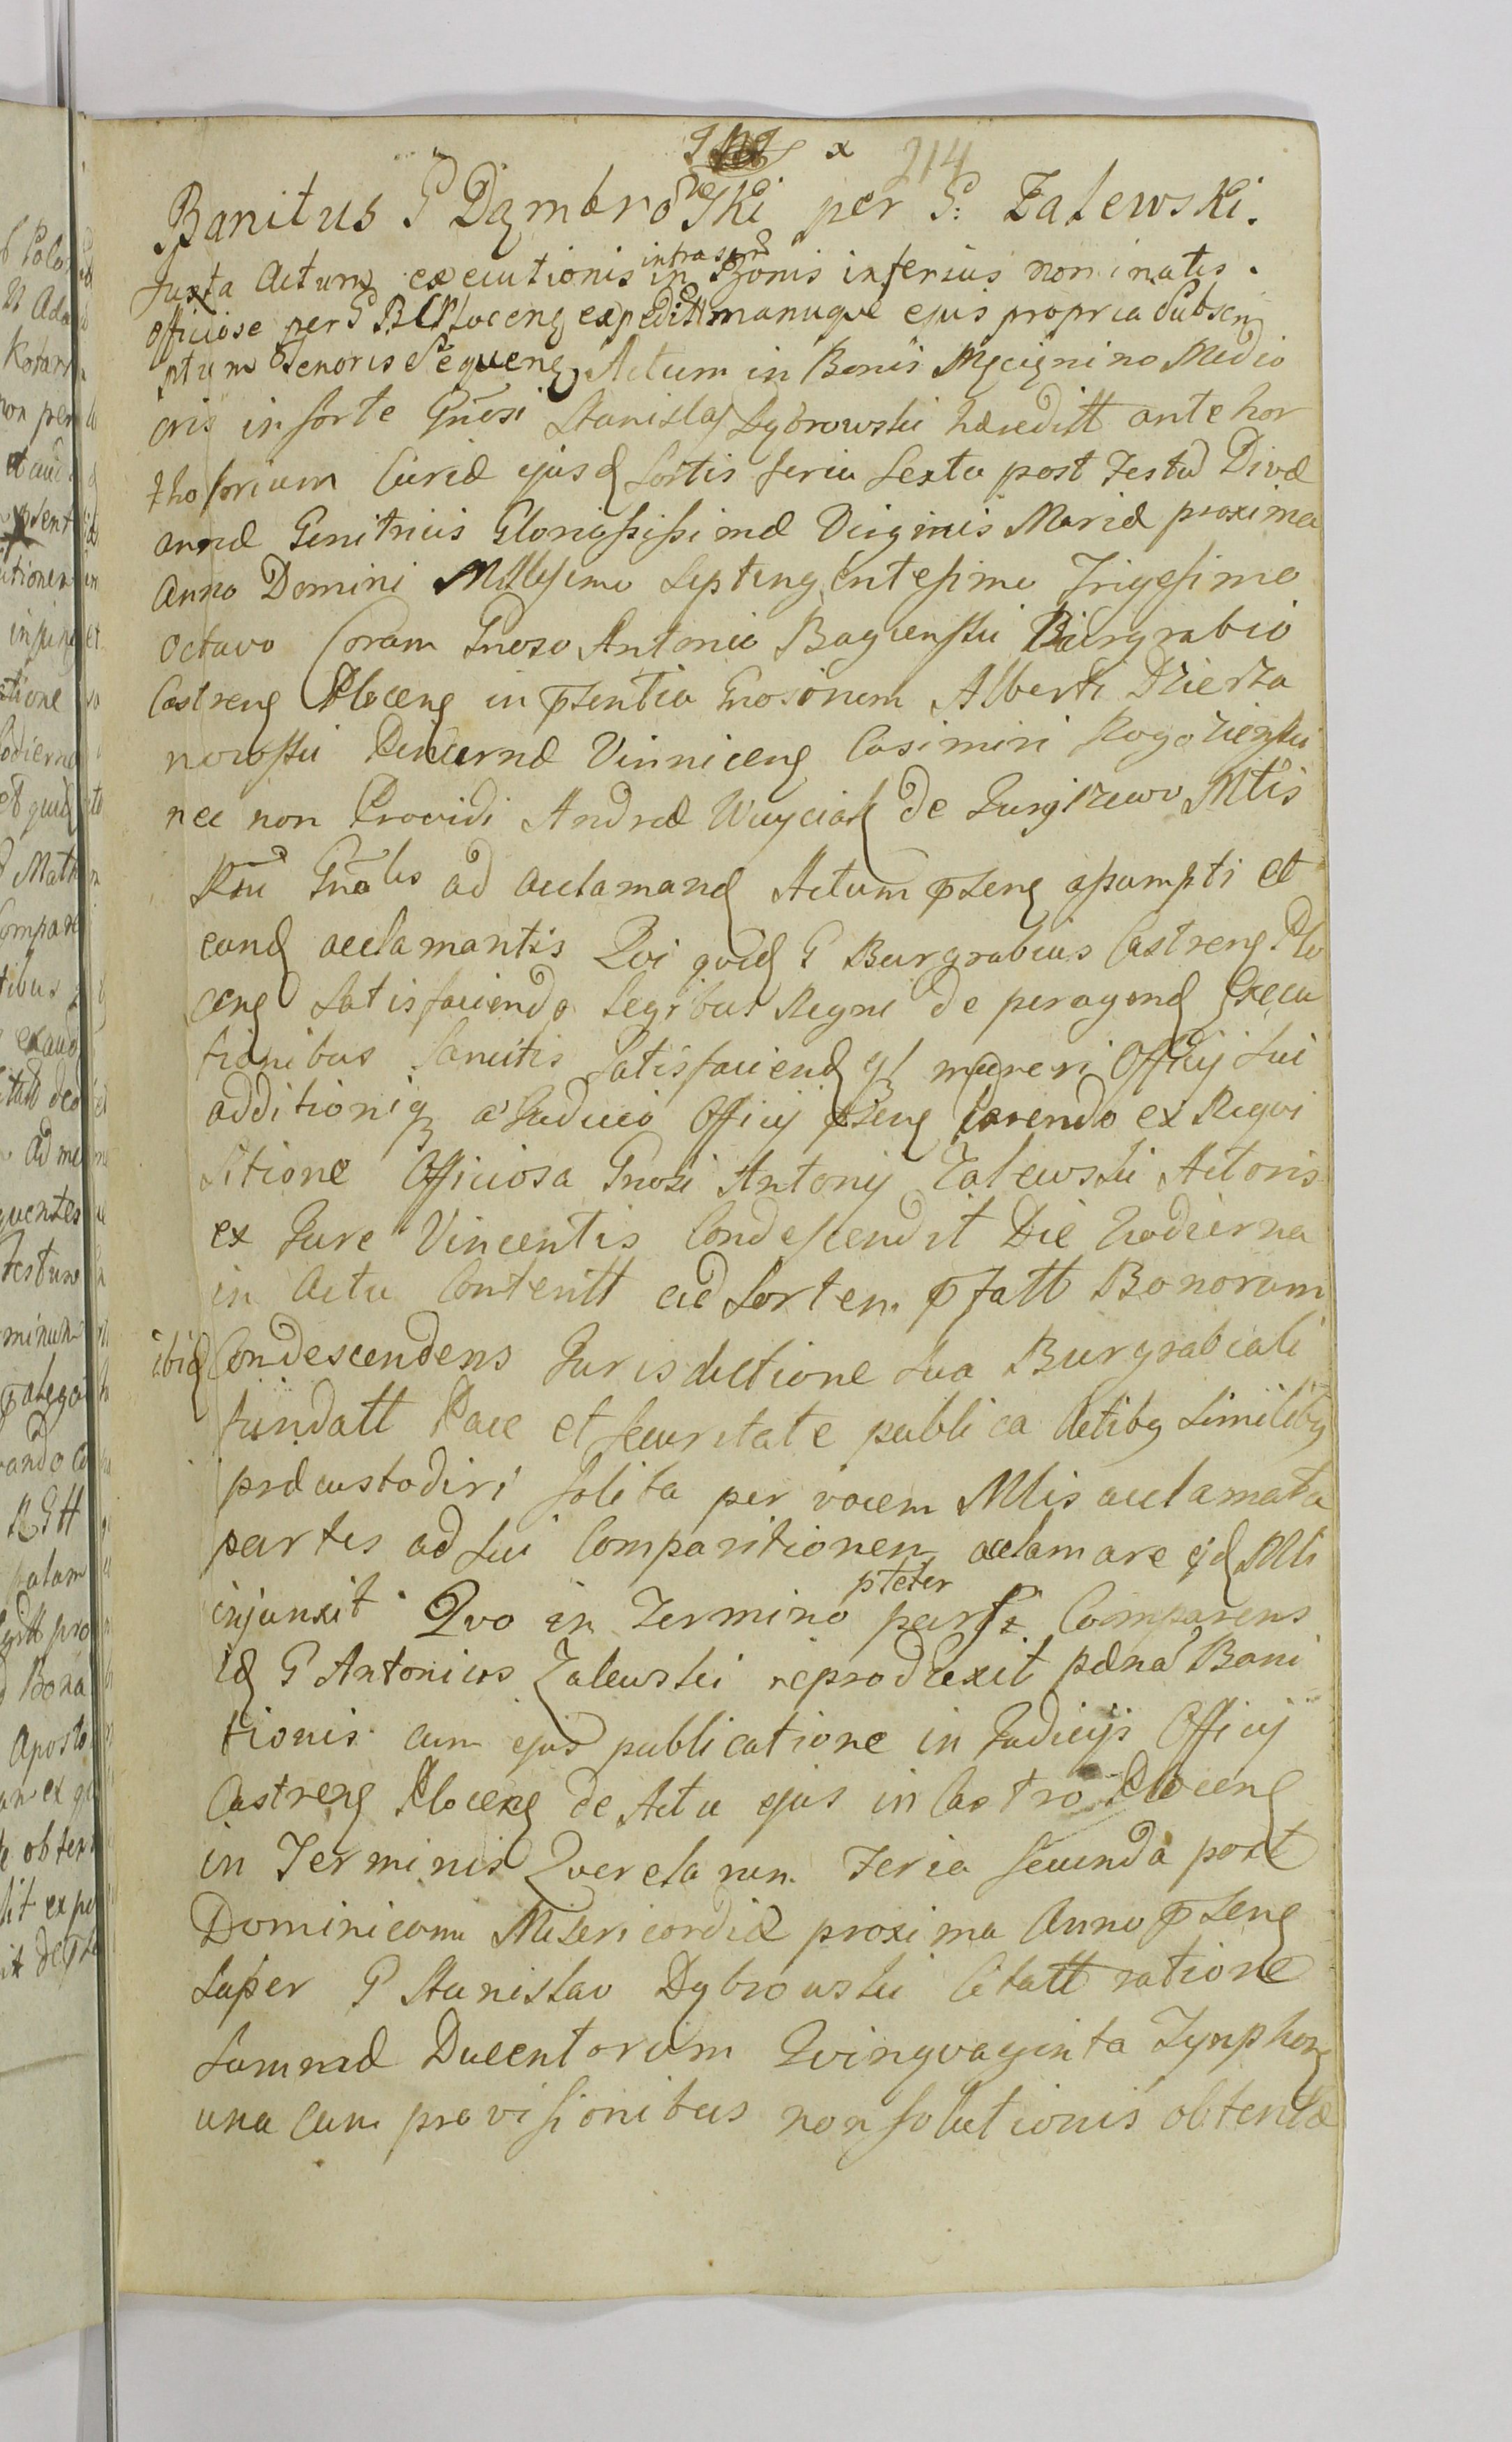 214
Banitus G Dąmbrowski per G: Zalewski.
Juxta Actum executionis infrascrip in Bonis inferius nominatis.
officiose per G BCPloceng expeditt manuque ejus propria Subscri
ptum tenoris Sequeng Actum in Bonis Mącięnino Medio
cris in sorte Gnosi Stanislaj Dąbrowski hæreditt ante hor
thosorium Curiæ ejusd sortis feria sexta post Festum Divæ
annæ Genitricis Gloriosissimæ Virginis Mariæ proxima
Anno Domini Millesimo Septingentesimo Trigesimo
octavo Coram Gnoso Antonio Bagienski Burgrabio
Castreng Ploceng in pñsentia Gnosorum Alberti Dzierza
nowski Pincernæ Vinniceng Casimiri Rogozienski
nec non Providi Andreæ Woyciak de Jurgiszewo Mtis
Rni Gnalis ad acclamand Actum pñseng assumpti et
eund acclamantis Qui quid G Burgrabius Castreng Plo
ceng Satisfaciendo Legibus Regni de peragend Execu
tionibus Sancitis Satisfaciend qs muneri Officij sui
additioniq a Judicio Officij pñseng parendo ex Requi
sitione Officiosa Gnosi Antonij Zalewski Actoris
ex Jure Vincentis Condescendit Die hodierna
in Actu Contentt ad Sortem pfatt Bonorum
ibid Condescendens Jurisdictione sua Burgrabiali
fundatt Pace et securitate publica Actibg similibg
præcustodiri solita per vocem Mlis acclamata
partes ad sui Comparitionem acclamare ejd Mli
injunxit Quo in Termino pteter parte Comparens
id G Antonius Zalewski reproduxit pænam Bani
tionis cum ejus publicatione in Judicijs Officij
Castreng Ploceng de Actu ejus in Castro Ploceng
in Terminis Querelarum Feria secunda post
Dominicam Misericordiæ proxima Anno pñseng
super G Stanislao Dąbrowski Citatt ratione
summæ Ducentorum Quinquaginta Tynphong
una cum provisionibus non solutionis obtentæ